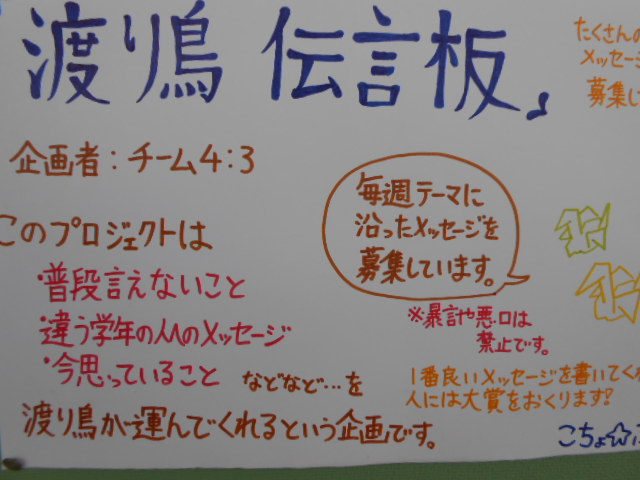 渡り鳥 伝言板」
たくさんの
メッセージ
募集し
企画者:チーム4:3
毎週テーマに
沿ったメッセージを
募集しています。
このプロジェクトは
・普段言えないこと
違う学年の人のメッセージ
・今思っていること
などなど…を
渡り鳥が運んでくれるという企画です。
※暴言や悪口は
禁止です。
1番良いメッセージを書いてくれ
人には大賞をおくります?
こちょ☆